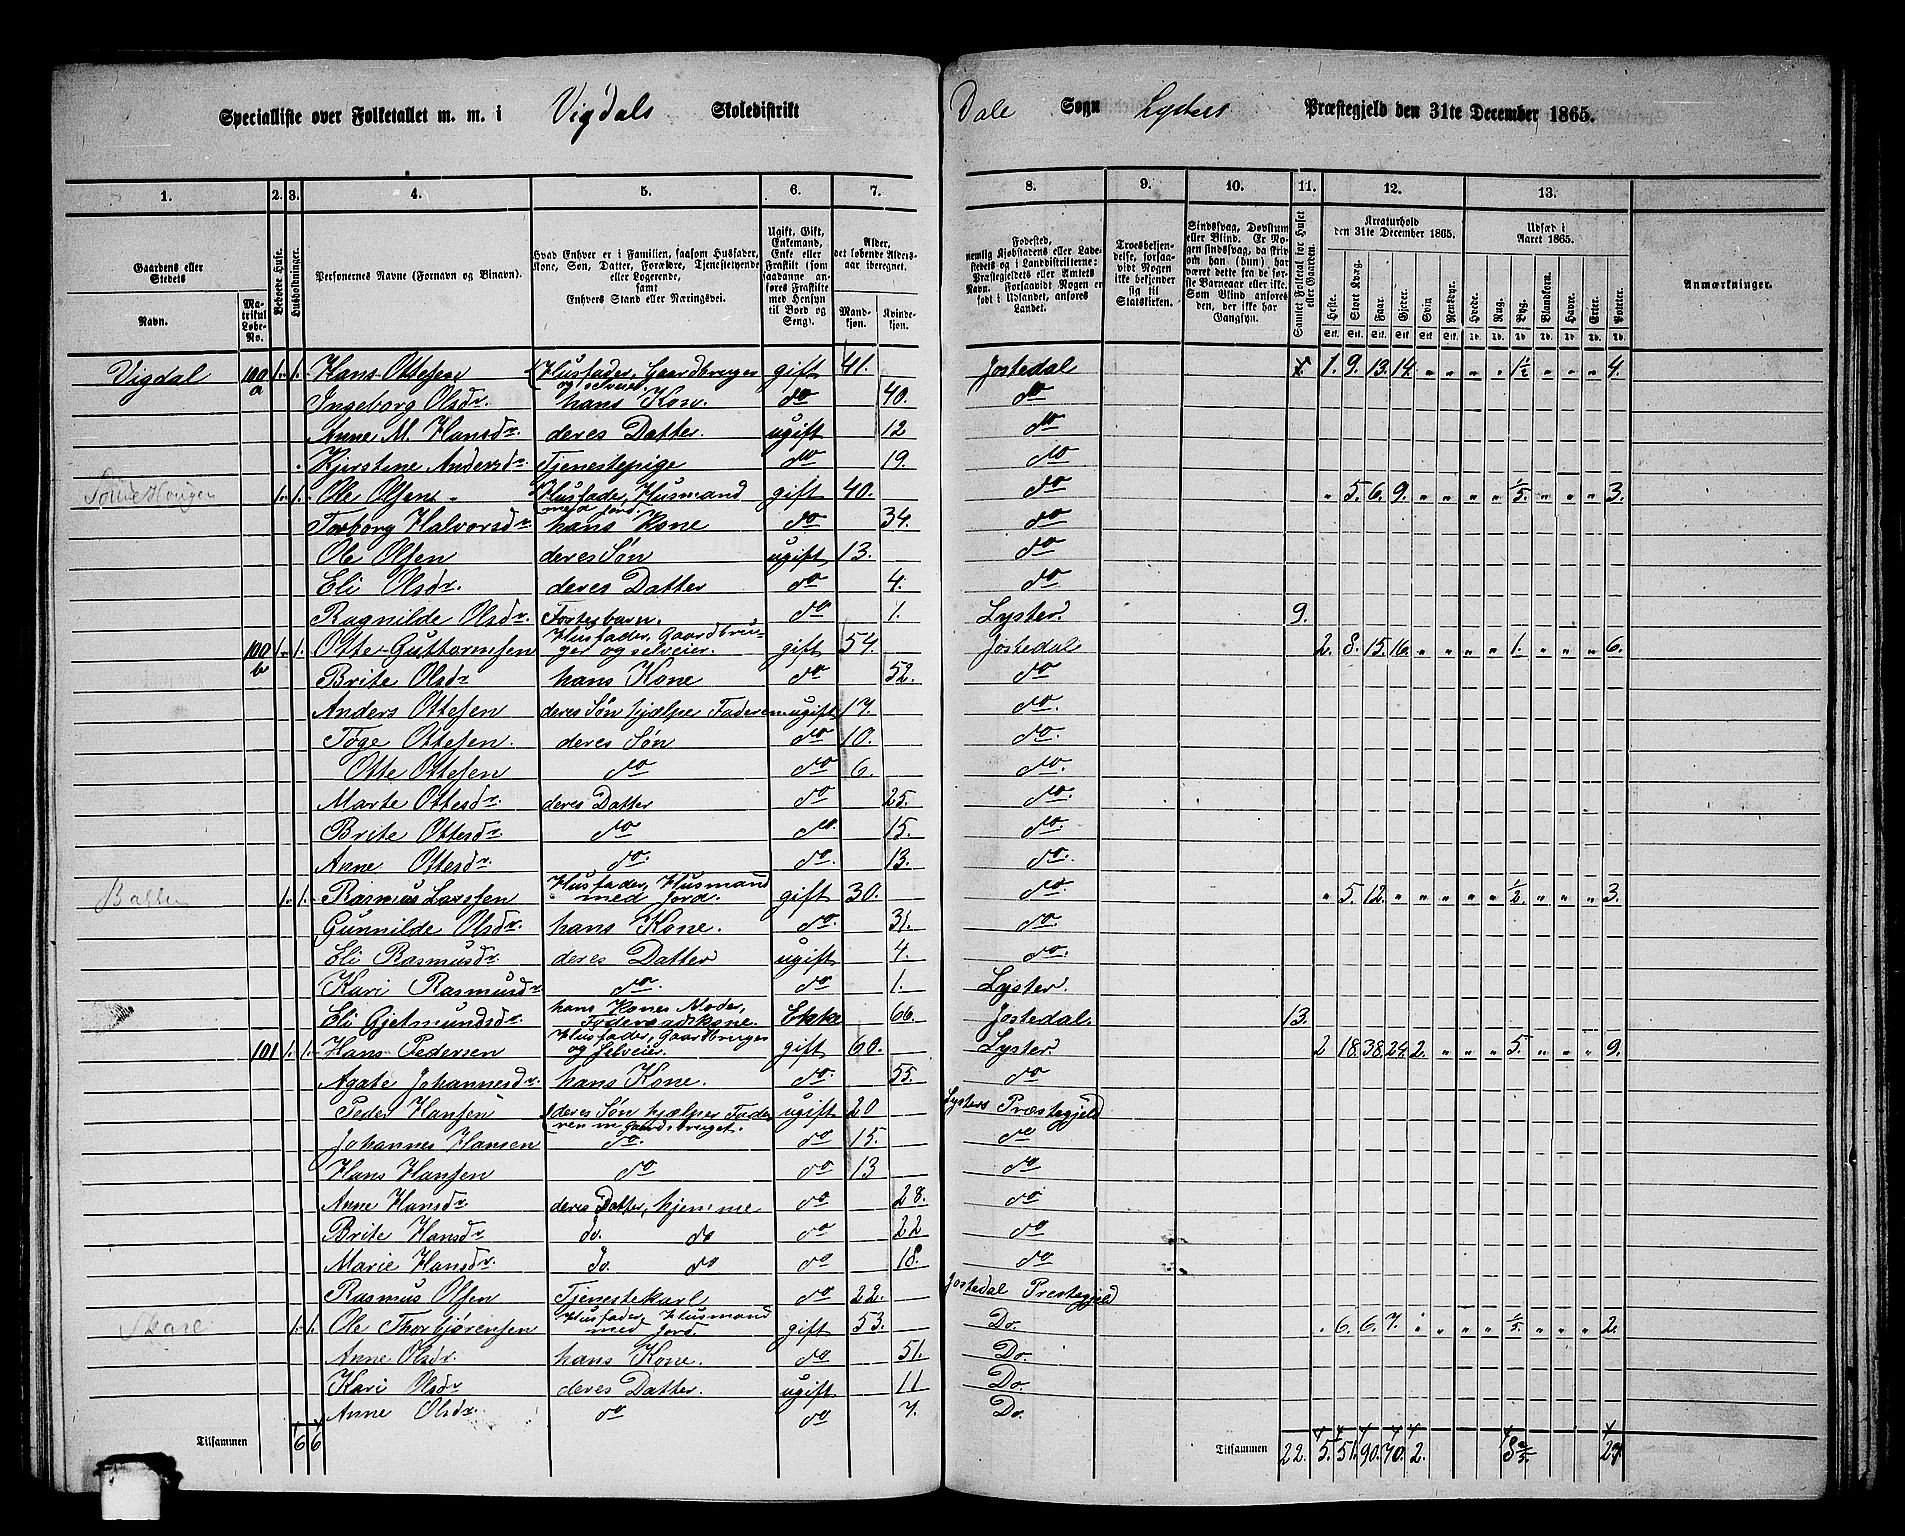 Specialliste over Folketallet m. m. i Vigdals Skoledistrikt Dale Sogn Lysters Præstegjeld den 31te December 1865.
1. 2. 3. 4. 5. 6. 7. 8. 9. 10. 11. 12. 13.
Gaardens eller Stedets Navn. Matrikul Løbe-No. Beboede Huse. Husholdninger. Personernes Navne (Fornavn og Binavn). Hvad Enhver er i Familien, saasom Husfader, Kone, Søn, Datter, Forældre, Tjenestetyende eller Logerende, samt Enhvers Stand eller Næringsvei. Ugift, Gift, Enkemand, Enke eller Fraskilt (som saadanne anføres Fraskilte med Hensyn til Bord og Seng). Alder, det løbende Alders-aar iberegnet. Mandkjøn. Kvindekjøn.
Fødested, nemlig Kjøbstadens eller Ladestedets og i Landdistrikterne: Præstegjeldets eller Amtets Navn. Forsaavidt Nogen er født i Udlandet, anføres Landet. Troesbekjendelse, forsaavidt Nogen ikke bekjender sig til Statskirken. Sindssvag, Døvstum eller Blind. Er Nogen sindssvag, da skrives om han (hun) har været dette fra de første Barneaar eller ikke. Som Blind anføres den, der ikke har Gangsyn. Samlet Folketal for Huset eller Gaarden. Kreaturhold den 31te December 1865. Udsæd i Aaret 1865. Anmærkninger.
Heste. Stort Kvæg. Faar. Gjeder. Svin Rensdyr. Hvede. Rug. Byg. Blandkorn. Havre. Erter. Poteter.
Vigdal 100 a 1. 1. Hans Ottesen Husfader, Gaardbruger og selveier gift 41. Jostedal 1. 9. 13. 14. " " " " 1½ " " " 4.
Ingeborg Olsdr. hans Kone. do 40. do
Anne M. Hansdr. deres Datter. ugift 12 do
Kjerstene Andersdr. Tjenestepige do 19. do
1. 1. Ole Olsen Husfader, Husmand med Jord. gift 40. do " 5. 6. 9. " " " " 1/5 " " " 3.
Torborg Halvorsdr. hans Kone do 34. do
Ole Olsen deres Søn ugift 13. do
Eli Olsdr. deres Datter do 4. do
Ragnilde Olsdr. Fosterbarn. do 1. Lyster. 9.
100 b 1. 1. Otte Guttormsen Husfader, Gaardbruger og selveier. gift 54. Jostedal 2. 8. 15. 16. " " " " 1. " " " 6.
Brite Olsdr hans Kone do 52. do
Anders Ottesen deres Søn hjælper Faderen ugift 17. do.
Tøge Ottesen. deres Søn do 10. do.
Otte Ottesen do do 6. do.
Marte Ottesdr. deres Datter do 25. do.
Brite Ottesdr. do do. 15. do.
Anne Ottesdr. do. do. 13. do.
1. 1. Rasmus Larssen Husfader, Husmand med Jord. gift 30. do. " 5. 12. " " " " " ½ " " " 3.
Gunnilde Olsdr. hans Kone. do. 31. do.
Eli Rasmusdr. deres Datter ugift 4. do.
Kari Rasmusdr do. do 1. Lyster.
Eli Gjetmundsdr. hans Kones Moder, Føderaadskone. Enke 66. Jostedal. 13.
101 1. 1. Hans Pedersen Husfader, Gaardbruger og selveier. gift 60. Lyster. 2 18. 38. 24. 2. " " " 5. " " " 9.
Agate Johannesdr. hans Kone. do. 55. do
Peder Hansen deres Søn hjælper Faderen m Gaardsbruget. ugift 20 Lysters Præstegjeld
Johannes Hansen do. do 15. do
Hans Hansen do do 13 do
Anne Hansdr. deres Datter, hjemme do 28. do
Brite Hansdr do. do do 22 do
Marie Hansdr. do. do do 18. do
Rasmus Olsen Tjenestekarl do 22. Jostedal Præstegjeld
Skare 1. 1. Ole Thorbjørensen Husfader, Husmand med Jord. gift 53. Do. " 6. 6. 7. " " " " 1/5 " " " 2.
Anne Olsdr. hans Kone. do 51. Do.
Kari Olsdr deres Datter. ugift 11 Do.
Anne Olsdr. do do 7. Do.
Tilsammen 6 6 Tilsammen 22. 5. 51. 90. 70. 2. 27